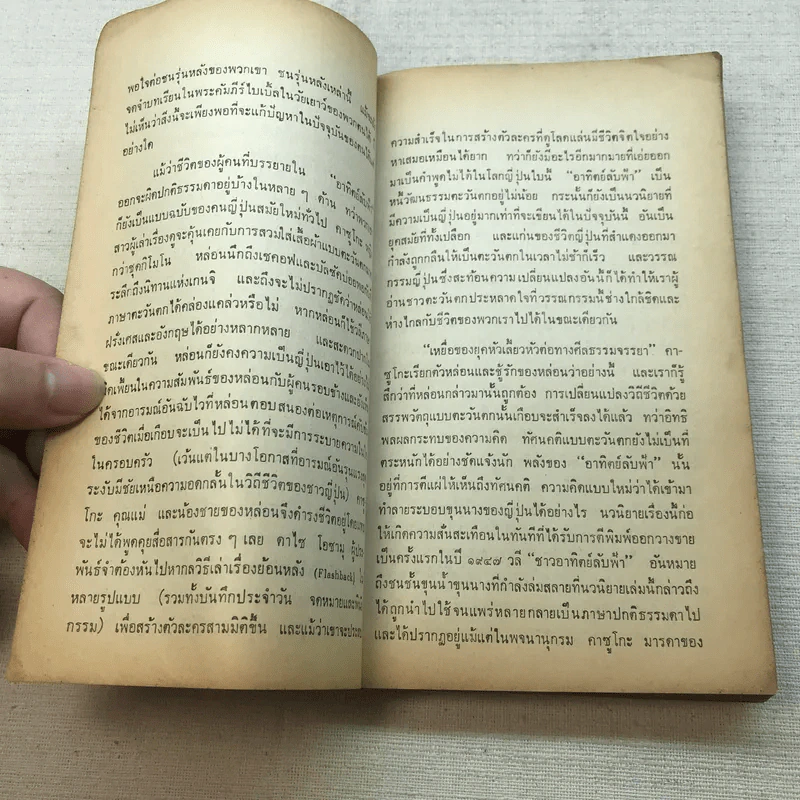 พอใจต่อชนรุ่นหลังของพวกเขา ชนรุ่นหลังเหล่านี้
จดจำบทเรียนในพระคัมภีร์ไบเบิ้ลในวัยเยาว์ของพวกตนได้
ไม่เห็นว่าสิ่งนี้จะเพียงพอที่จะแก้ปัญหาในปัจจุบันของตนได้
อย่างใด
แม้ว่าชีวิตของผู้คนที่บรรยายใน “อาทิตย์ลับฟ้า
ออกจะผิดปกติธรรมดาอยู่บ้างในหลาย ๆ ด้าน
ก็ยังเป็นแบบฉบับของคนญี่ปุ่นสมัยใหม่ทั่วไป คาซูโกะ
สาวผู้เล่าเรื่องดูจะคุ้นเคยกับการสวมใส่เสื้อผ้าแบบตะวันตก
กว่าชุดกิโมโน หล่อนนึกถึงเชคอฟและบัลซัค
ระลึกถึงนิทานแห่งเกนจิ และถึงจะไม่ปรากฏชัดว่าหล่อน
ภาษาตะวันตกได้คล่องแคล่วหรือไม่ หากหล่อนก็ใช้
ฝรั่งเศสและอังกฤษได้อย่างหลากหลาย
ขณะเดียวกัน หล่อนก็ยังคงความเป็นญี่ปุ่นเอาไว้ได้
เพี้ยนในความสัมพันธ์ของหล่อนกับผู้คนรอบข้าง
ได้จากอารมณ์อันฉับไวที่หล่อนตอบสนองต่อเหตุการณ์
ของชีวิตเมื่อเกือบจะเป็นไปไม่ได้ที่จะมีการระบายความ
ในครอบครัว (เว้นแต่ในบางโอกาสที่อารมณ์อันรุนแรง
ระงับมีชัยเหนือความอดกลั้นในวิถีชีวิตของชาวญี่ปุ่น)
โกะ คุณแม่ และน้องชายของหล่อนจึงดำรงชีวิตอยู่
จะไม่ได้พูดคุยสื่อสารกันตรง ๆ เลย ดาไซ โอซามุ
พันธ์จำต้องหันไปหากลวิธีเล่าเรื่องย้อนหลัง (Flashback)
หลายรูปแบบ (รวมทั้งบันทึกประจำวัน จดหมาย
กรรม) เพื่อสร้างตัวละครสามมิติขึ้น และแม้ว่าเขาจะ
ความสำเร็จในการสร้างตัวละครที่ดูโลดแล่นมีชีวิตจิตใจอย่าง
หาเสมอเหมือนได้ยาก ทว่าก็ยังมีอะไรอีกมากมายที่เอ่ยออก
มาเป็นคำพูดไม่ได้ในโลกญี่ปุ่นใบนี้ “อาทิตย์ลับฟ้า” เป็น
หนี้วัฒนธรรมตะวันตกอยู่ไม่น้อย กระนั้นก็ยังเป็นนวนิยายที่
มีความเป็นญี่ปุ่นอยู่มากเท่าที่จะเขียนได้ในปัจจุบันนี้ อันเป็น
ยุคสมัยที่ทั้งเปลือก และแก่นของชีวิตญี่ปุ่นที่สำแดงออกมา
กำลังถูกกลืนให้เป็นตะวันตกในเวลาไม่ช้าก็เร็ว และวรรณ
กรรมญี่ปุ่นซึ่งสะท้อนความเปลี่ยนแปลงอันนี้ก็ได้ทำให้เราผู้
อ่านชาวตะวันตกประหลาดใจที่วรรณกรรมนี้ช่างใกล้ชิดและ
ห่างไกลกับชีวิตของพวกเราไปได้ในขณะเดียวกัน
“เหยื่อของยุคหัวเลี้ยวหัวต่อทางศีลธรรมจรรยา” คา-
ซูโกะเรียกตัวหล่อนและชู้รักของหล่อนว่าอย่างนี้ และเราก็รู้
สึกว่าที่หล่อนกล่าวมานั้นถูกต้อง การเปลี่ยนแปลงวิถีชีวิตด้วย
สรรพวัตถุแบบตะวันตกนั้นเกือบจะสำเร็จลงได้แล้ว ทว่าอิทธิ
พลผลกระทบของความคิด ทัศนคติแบบตะวันตกยังไม่เป็นที่
ตระหนักได้อย่างชัดแจ้งนัก พลังของ “อาทิตย์ลับฟ้า” นั้น
อยู่ที่การตีแผ่ให้เห็นถึงทัศนคติ ความคิดแบบใหม่ว่าได้เข้ามา
ทำลายระบอบขุนนางของญี่ปุ่นได้อย่างไร นวนิยายเรื่องนี้ก่อ
ให้เกิดความสั่นสะเทือนในทันทีที่ได้รับการตีพิมพ์ออกวางขาย
เป็นครั้งแรกในปี ๑๙๔๗ วลี “ชาวอาทิตย์ลับฟ้า” อันหมาย
ถึงชนชั้นขุนน้ำขุนนางที่กำลังล่มสลายที่นวนิยายเล่มนี้กล่าวถึง
ได้ถูกนำไปใช้จนแพร่หลายกลายเป็นภาษาปกติธรรมดาไป
และได้ปรากฏอยู่แม้แต่ในพจนานุกรม คาซูโกะ มารดาของ